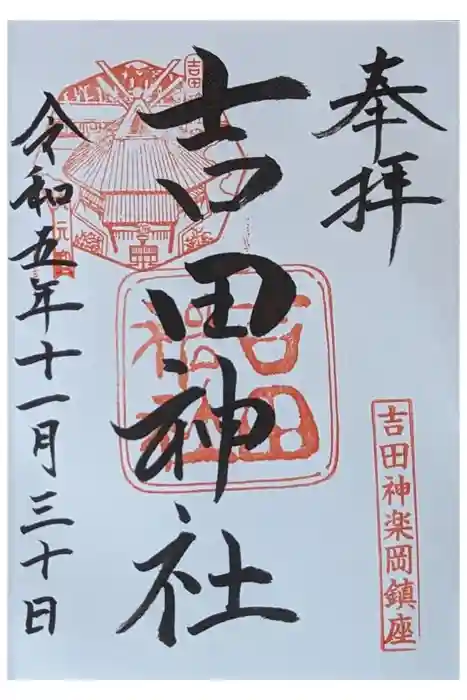 奉拝
吉田神楽岡鎮座
吉田神社
吉田
吉田
神社
令和五年十一月三十日